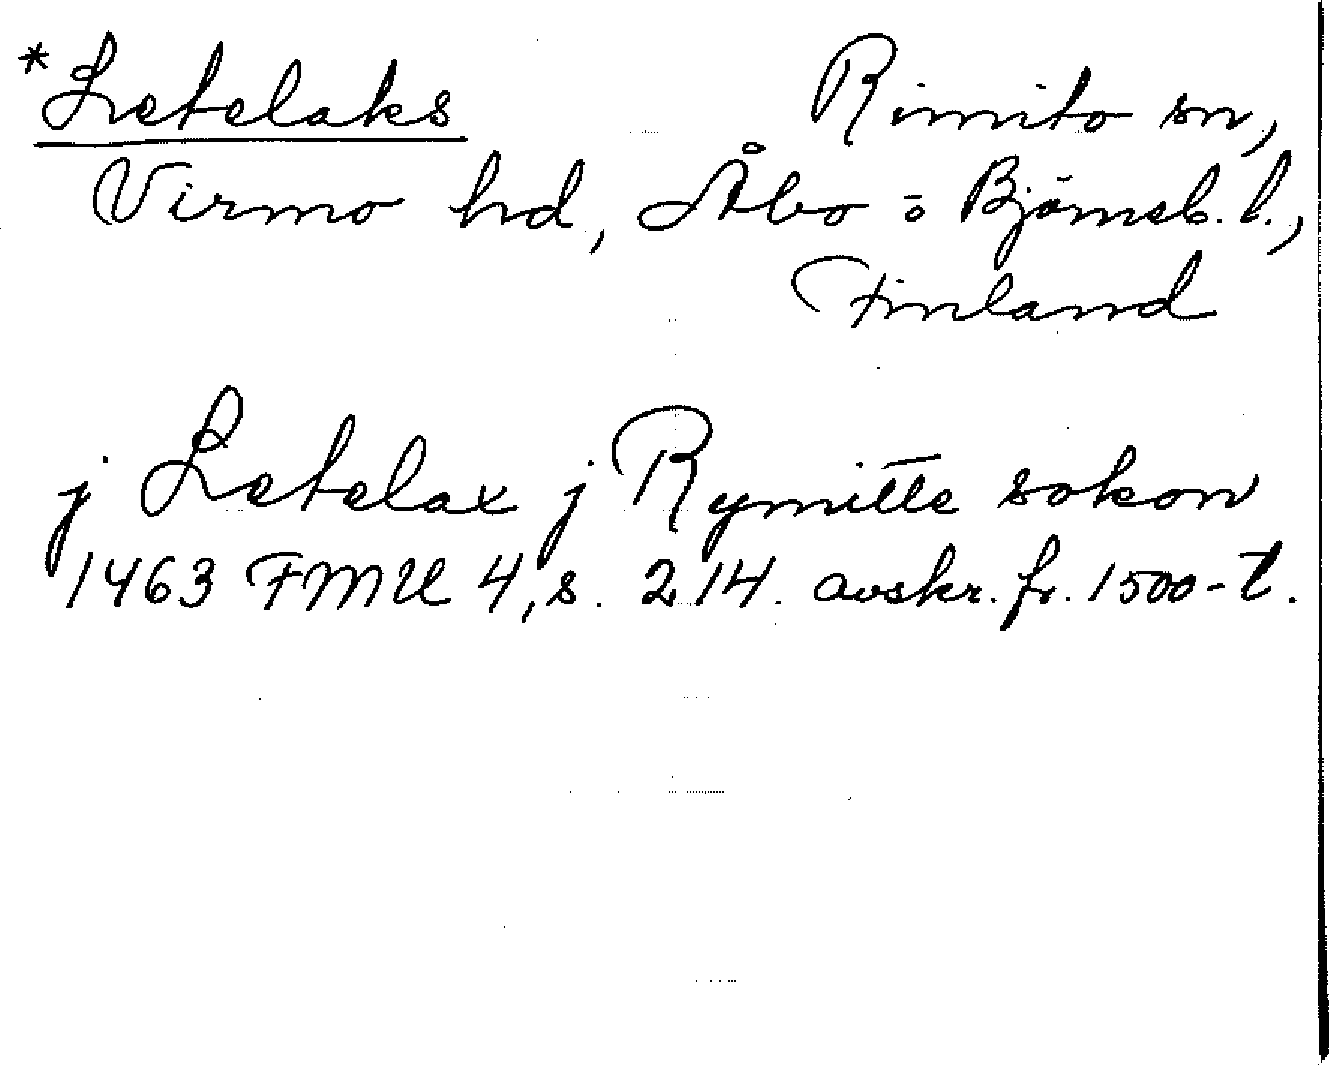 *Letelaks Rimito sn,
Virmo hd, Åbo o Björneb. l.,
Finland
j Letelax j Rymitte sokon
1463 FMU 4, s. 214. avskr. fr. 1500-t.